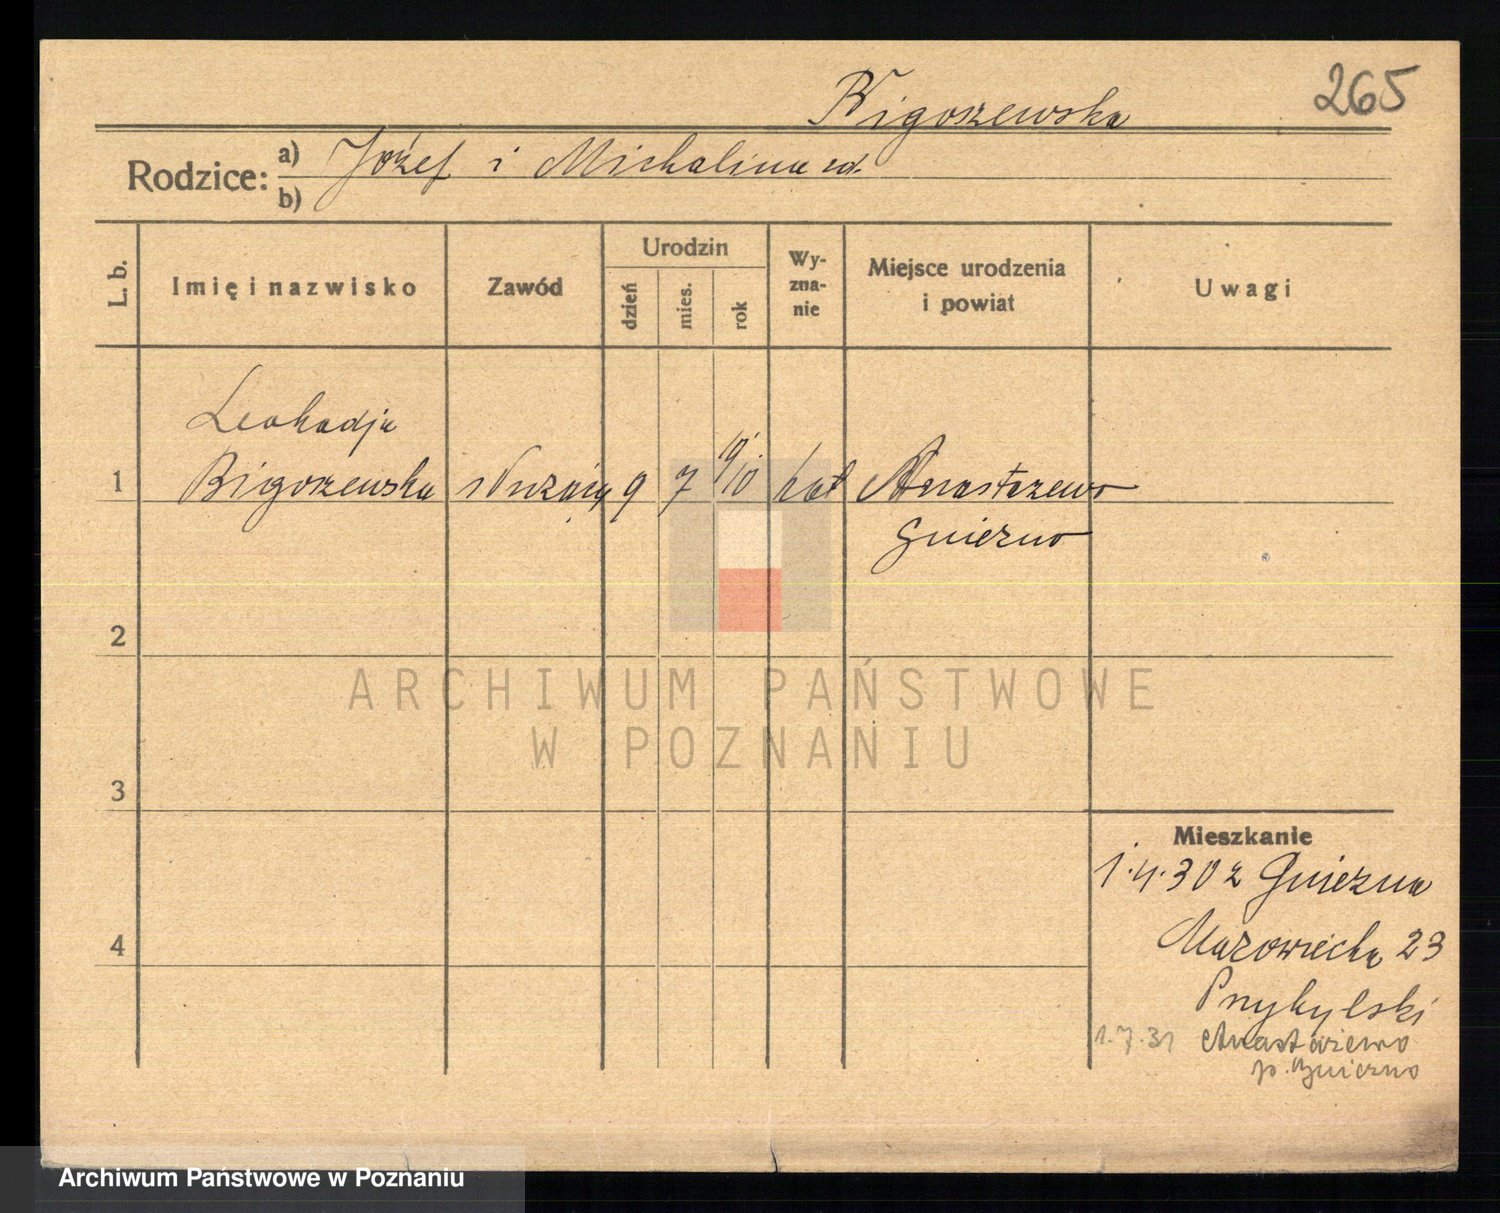 Bigoszewska 265
Rodzice: a) Józef i Michalina zd.
b)
L. b. Imię i nazwisko Zawód Urodzin dzień mies. rok Wyznanie Miejsce urodzenia i powiat Uwagi
Leokadja
1 Bigoszewska służąca 9 7 910 kat Anastazewo
Gniezno
2
3
4
Mieszkanie
1.4.30 z Gniezna
Mazowiecka 23
Przybylski
1.7.31 Anastazewo
p. Gniezno
ARCHIWUM PAŃSTWOWE
W POZNANIU
Archiwum Państwowe w Poznaniu